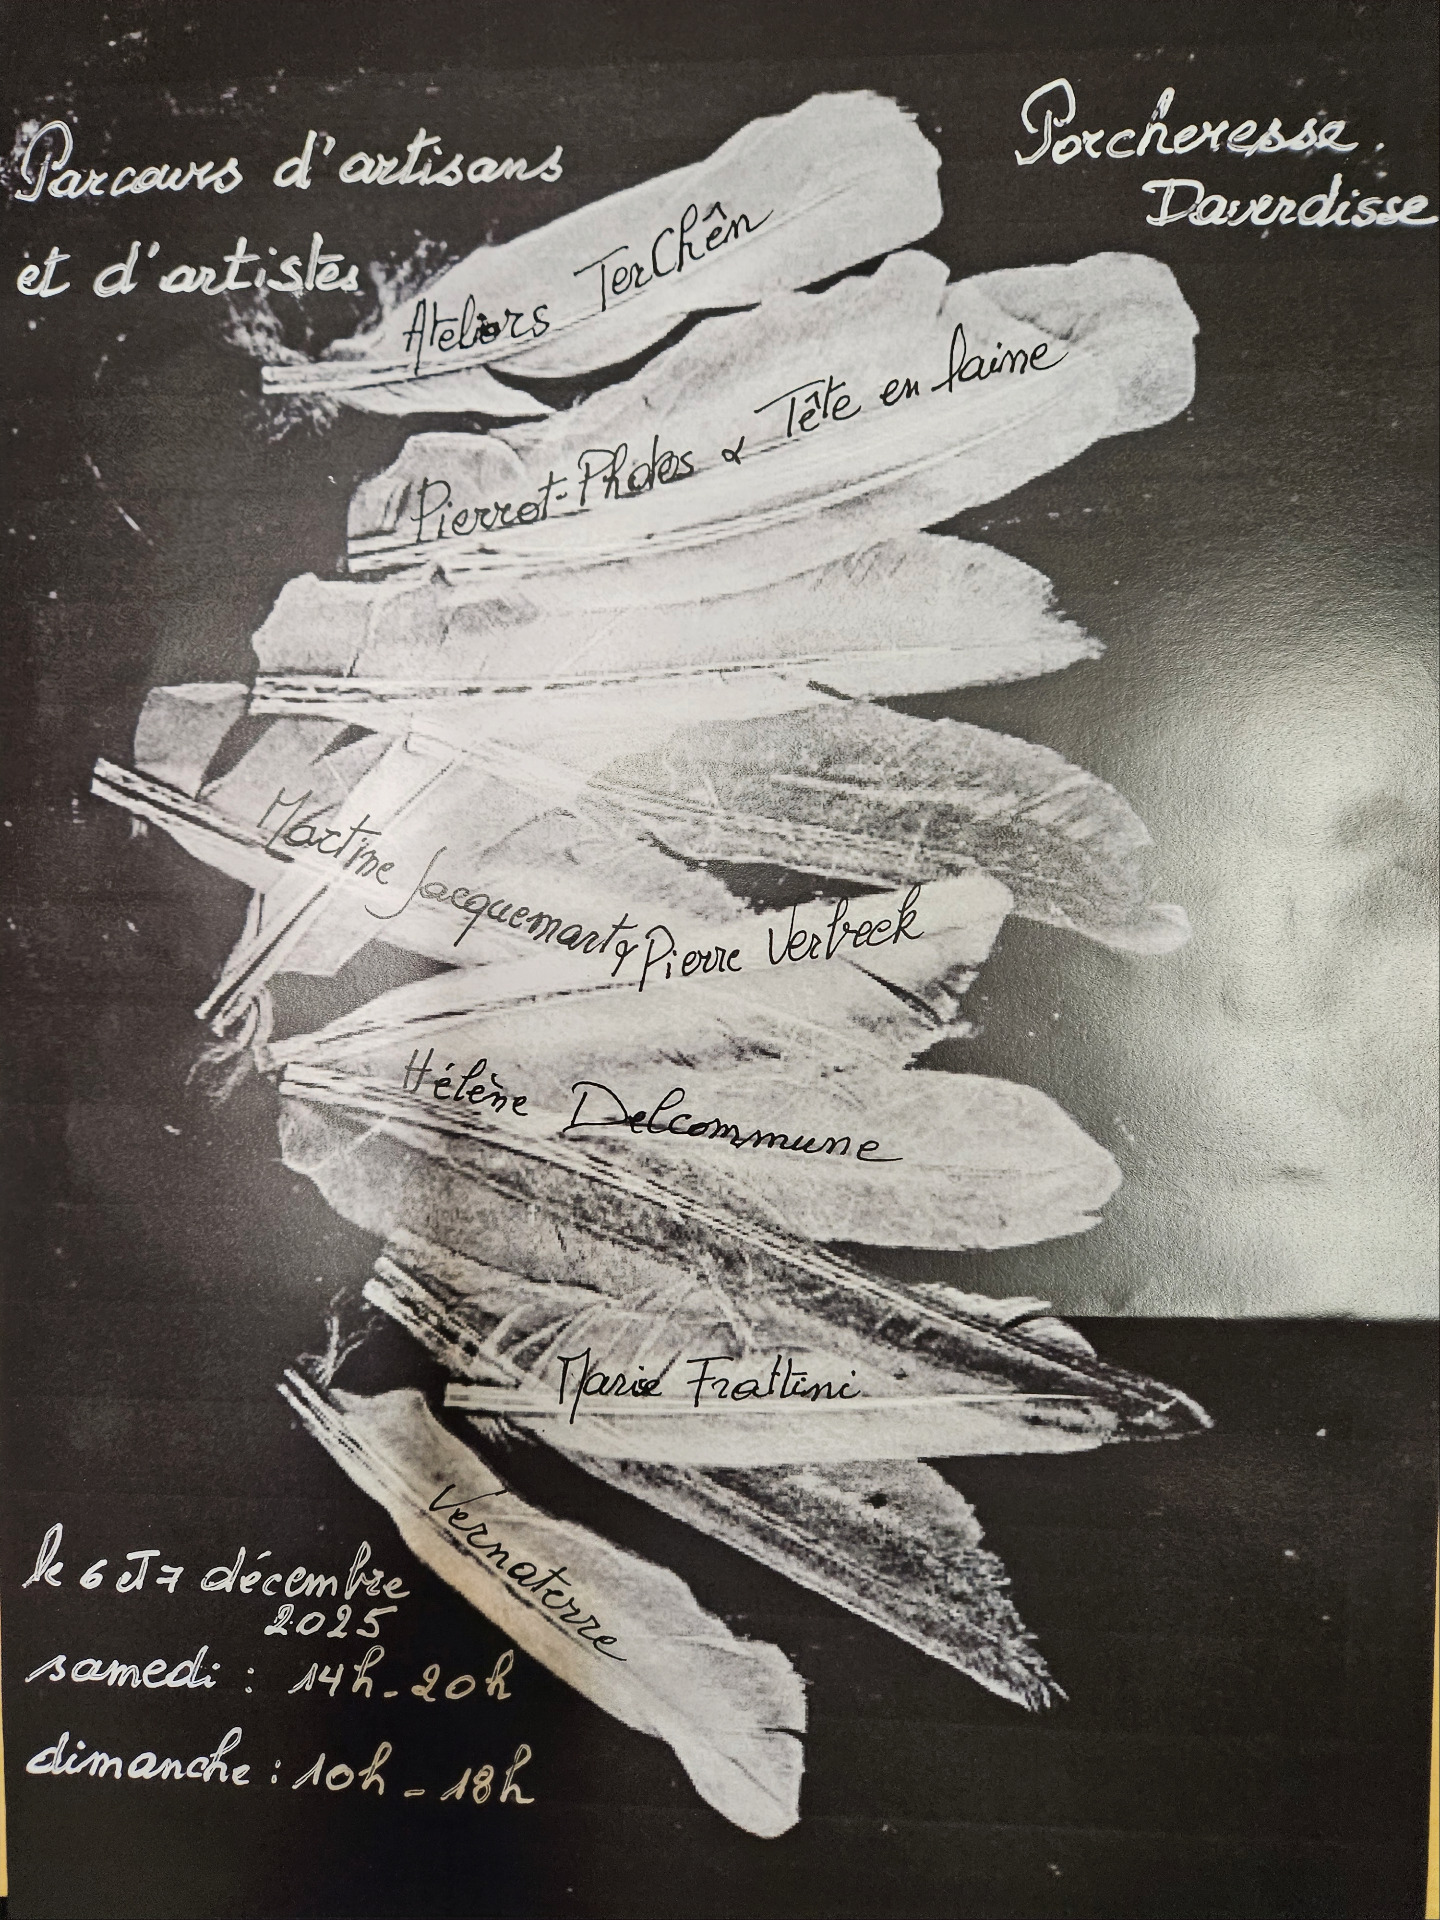 Parcours d'artisans
et d'artistes
Porcheresse.
Daverdisse
Ateliers TerChên
Pierrot-Photos & Tête en laine
Martine Jacquemart & Pierre Verbeek
Hélène Delcommune
Marie Frattini
Vernaterre
le 6 et 7 décembre
2025
samedi : 14h - 20h
dimanche : 10h - 18h